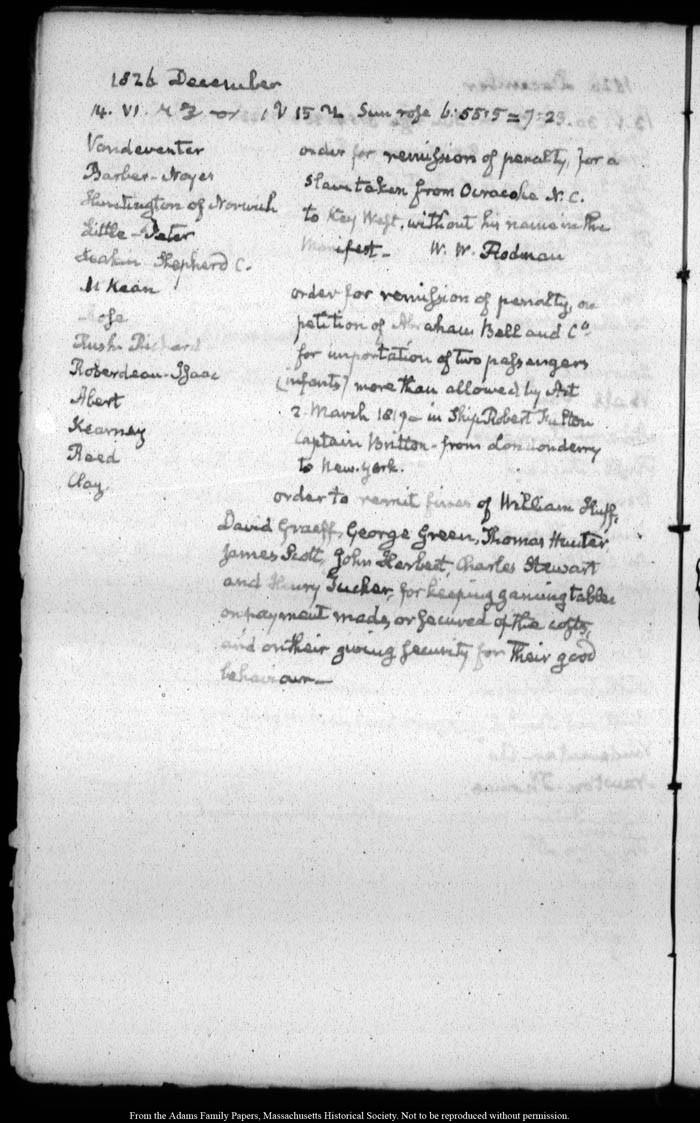 1826 December
14. VI. 15 Sun rose 6:55:5 = 7:23
Vandeventer
Barber-Noyes
Huntington of Norwich
Little-Peter
Deakin Shepherd C.
McKean
Rose
Rush-Richard
Roberdeau-Isaac
Abert
Kearney
Reed
Clay.
order for remission of penalty, for a
slave taken from Ocracoke N.C.
to Key West, without his name in the
Manifest- W. W. Rodman
order for remission of penalty, on
petition of Abraham Bell and Co.
for importation of two passengers
(infants) more than allowed by Act
2. March 1819- in Ship Robert Fulton
Captain Britton- from Londonderry
to New-York.
order to remit fines of William Huff,
David Graeff, George Green, Thomas Hunter,
James Scott, John Herbert, Charles Stewart
and Henry Tucker, for keeping gaming tables
on payment made, or secured of the costs,
and on their giving security for their good
behaviour-
From the Adams Family Papers, Massachusetts Historical Society. Not to be reproduced without permission.